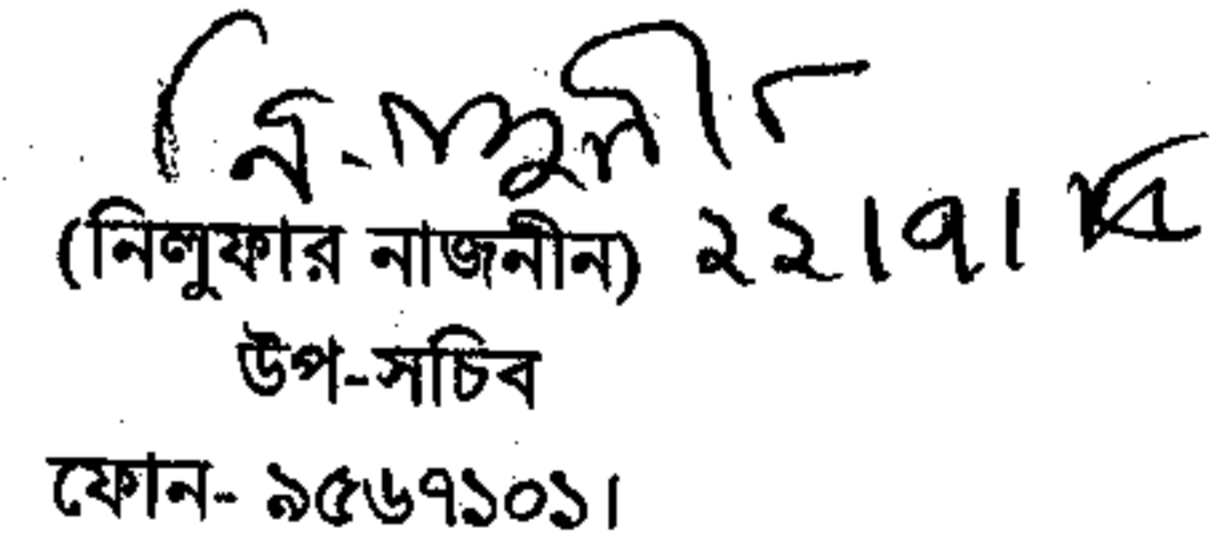 (নিলুফার নাজনীন) ২২।৭।
উপ-সচিব
ফোন- ৯৫৬৭১০১।